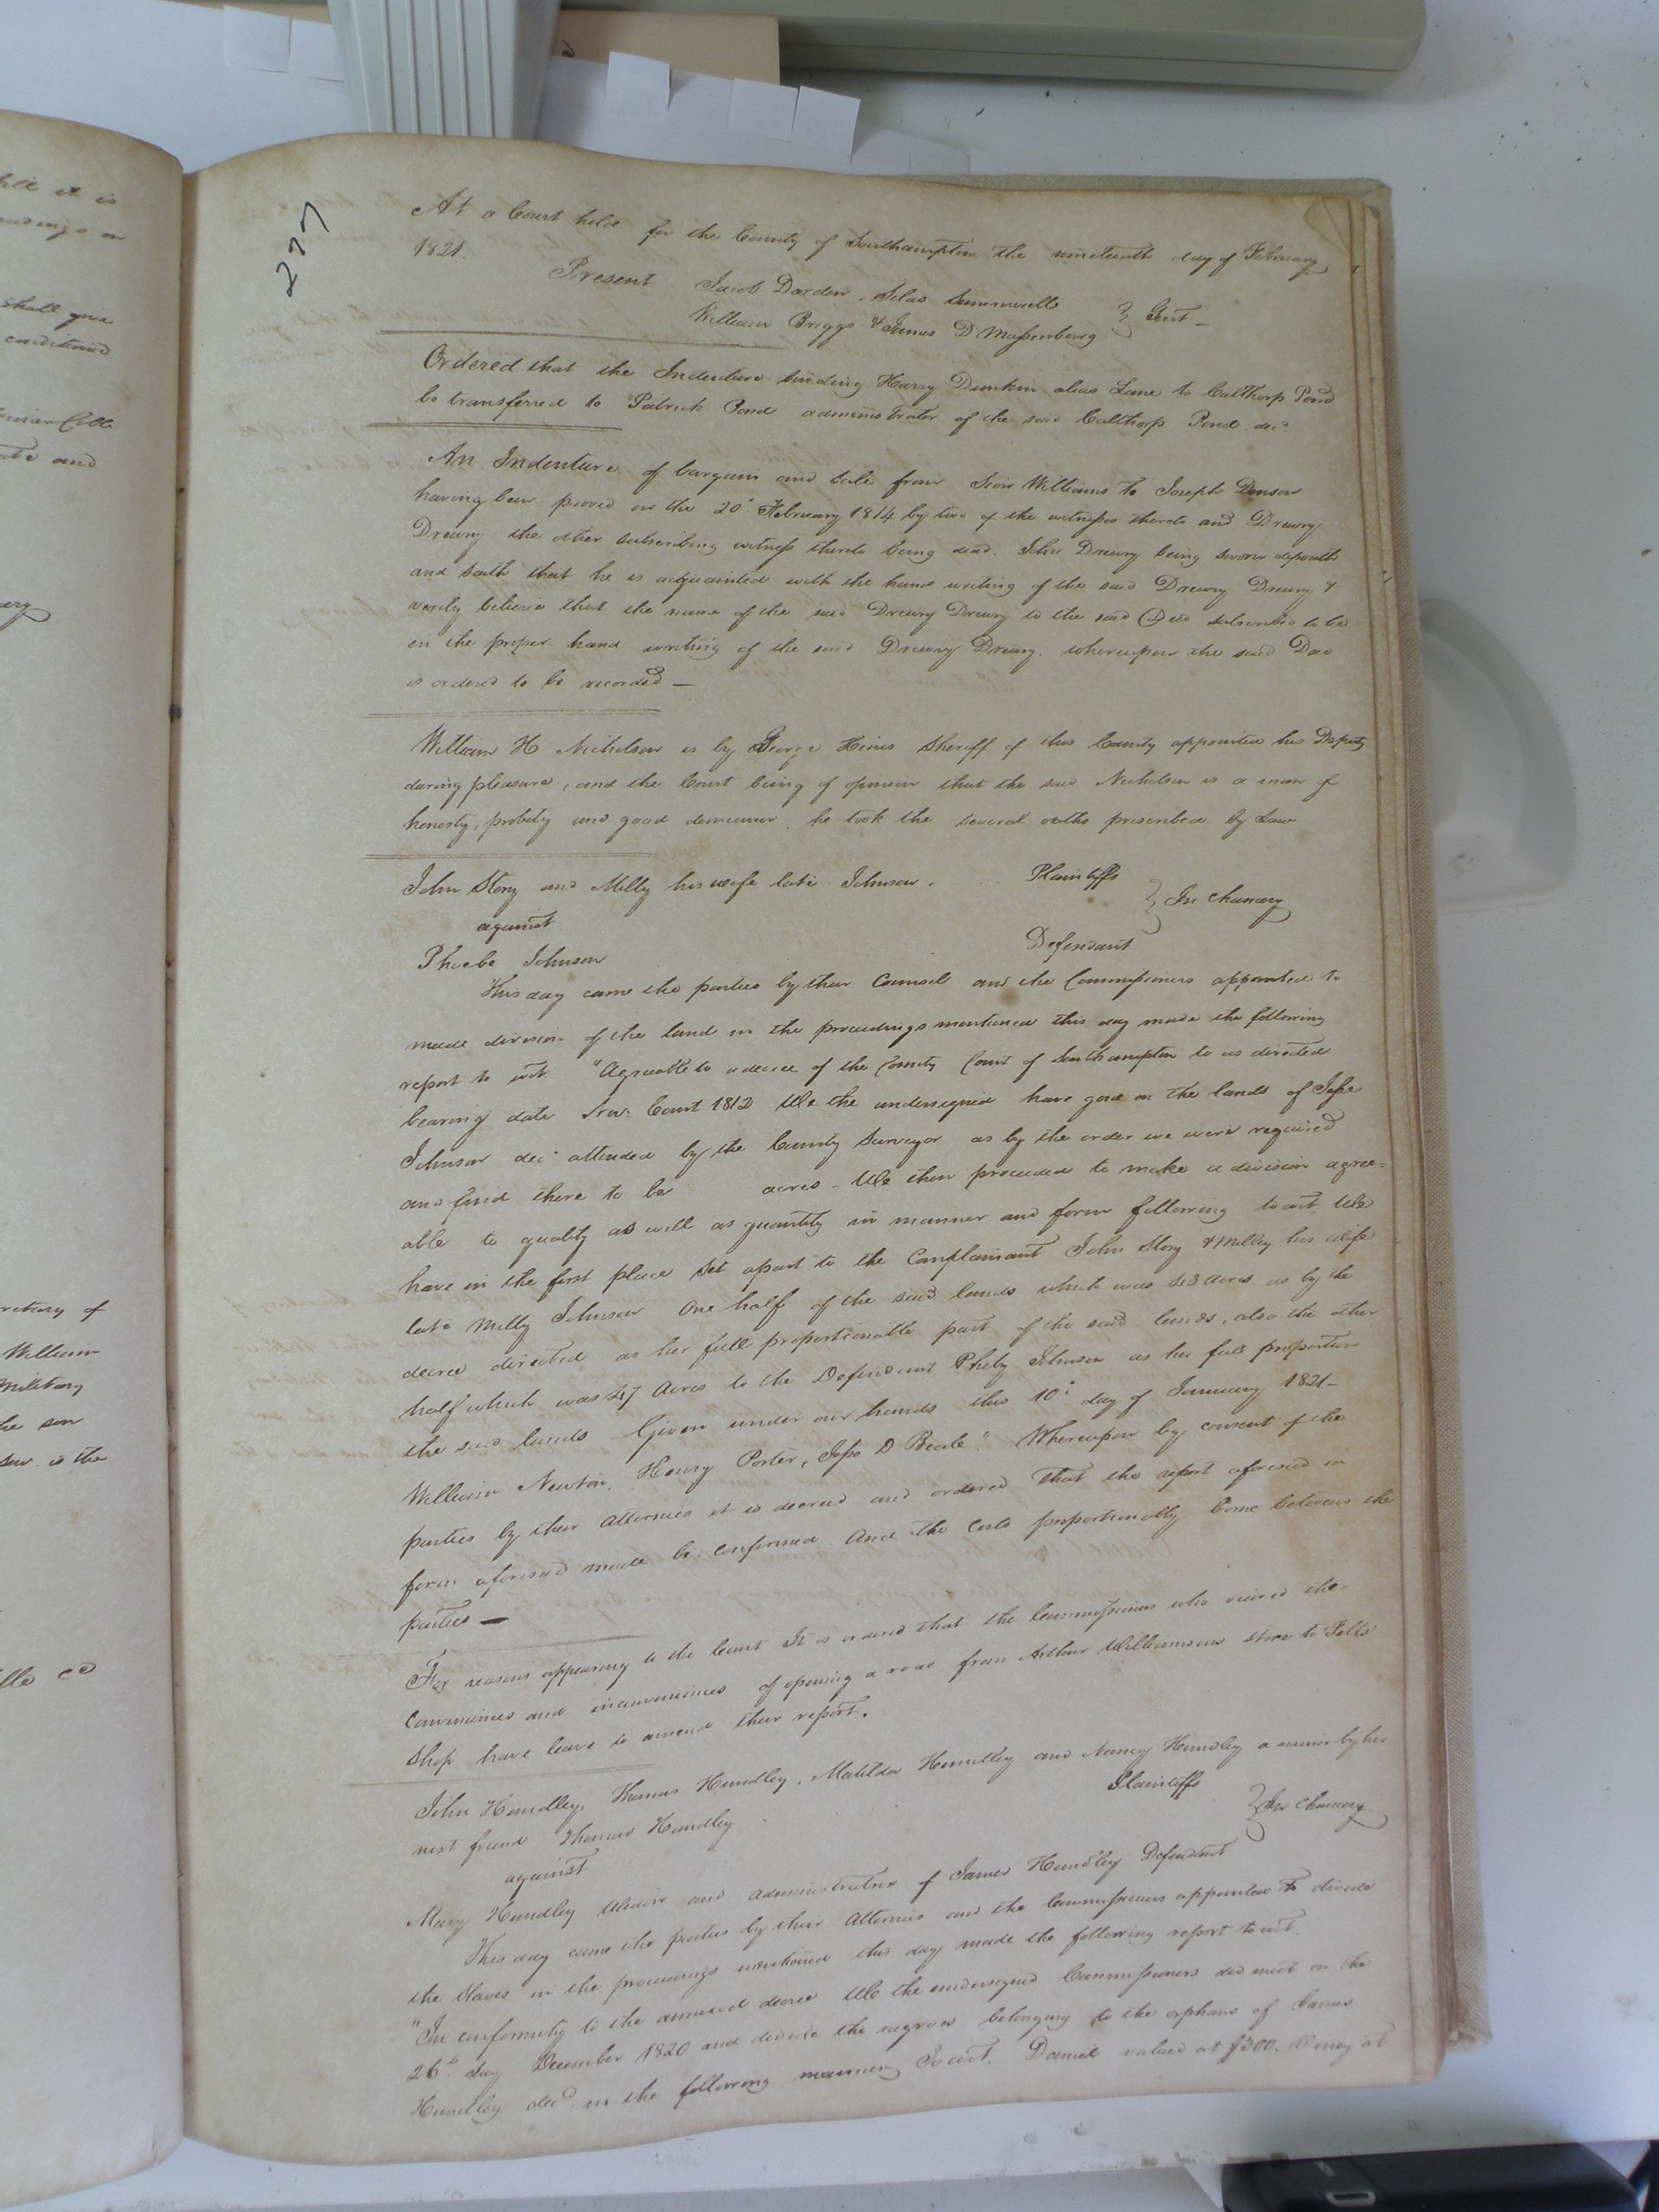 277
At a Court held for the County of Southampton the nineteenth day of February
1821.
Present Jacob Darden, Silas Summerell
William Briggs & James D Massenburg } Gent. —
Ordered that the Indenture binding Harry Dunkin alias Lane to Calthorp Pond
be transferred to Patrick Pond administrator of the said Calthorp Pond dec.d
An Indenture of bargain and sale from Williams to Joseph Denson
having been proved on the 20. February 1814 by two of the witnesses thereto and Drewry
Drewry the other subscribing witness thereto being dead. John Drewry being sworn deposeth
and saith that he is acquainted with the hand writing of the said Drewry Drewry &
verily believes that the name of the said Drewry Drewry to the said Deed subscribed to be
in the proper hand writing of the said Drewry Drewry. whereupon the said Deed
is ordered to be recorded —
William H Nicholson is by George Hines Sheriff of this County appointed his Deputy
during pleasure, and the Court being of opinion that the said Nicholson is a man of
honesty, probity and good demeanor he took the several oaths prescribed by Law
John Story and Milly his wife late Johnson. Plaintiffs
against } In Chancery
Phoebe Johnson Defendant
This day came the parties by their Counsel and the Commissioners appointed to
made division of the land in the proceedings mentioned this day made the following
report to wit "Agreeable to a decree of the County Court of Southampton to us directed
bearing date Nov. Court 1812 We the undersigned have gone on the lands of Jesse
Johnson dec.d attended by the County Surveyor as by the order we were required
and find there to be acres - We then proceeded to make a division agree=
able to quality as well as quantity in manner and form following to wit, We
have in the first place set apart to the Complainant John Story & Milley his wife
late Milly Johnson One half of the said lands which was acres as by the
decree directed as her full proportionable part of the said lands, also the other
half which was 47 Acres to the Defendant Pheby Johnson as her full proportion
the said lands Given under our hands this 10. day of January 1821—
William Newton, Henry Porter, Jesse D Beale." Whereupon by consent of the
parties by their Attornies it is decreed and ordered that the report aforesaid in
form aforesaid made be confirmed And the Costs proportionably borne between the
parties —
For reasons appearing to the Court It is ordered that the Commissioners who viewed the
conveniences and inconveniences of opening a road from Arthur Williamsons store to Felts
Shop have leave to amend their report.
John Hundley, Thomas Hundley, Matilda Hundley and Nancy Hundley a minor by her
next friend Thomas Hundley Plaintiffs
against } In Chancery
Mary Hundley Widow and administratrix of James Hundley Defendant
This day came the parties by their Attornies and the Commissioners appointed to divide
the Slaves in the proceedings mentioned this day made the following report to wit.
"In conformity to the annexed decree We the undersigned Commissioners did meet on the
26th day December 1820 and divide the negroes belonging to the orphans of James
Hundley dec.d in the following manner, to wit. Daniel valued at $300. at